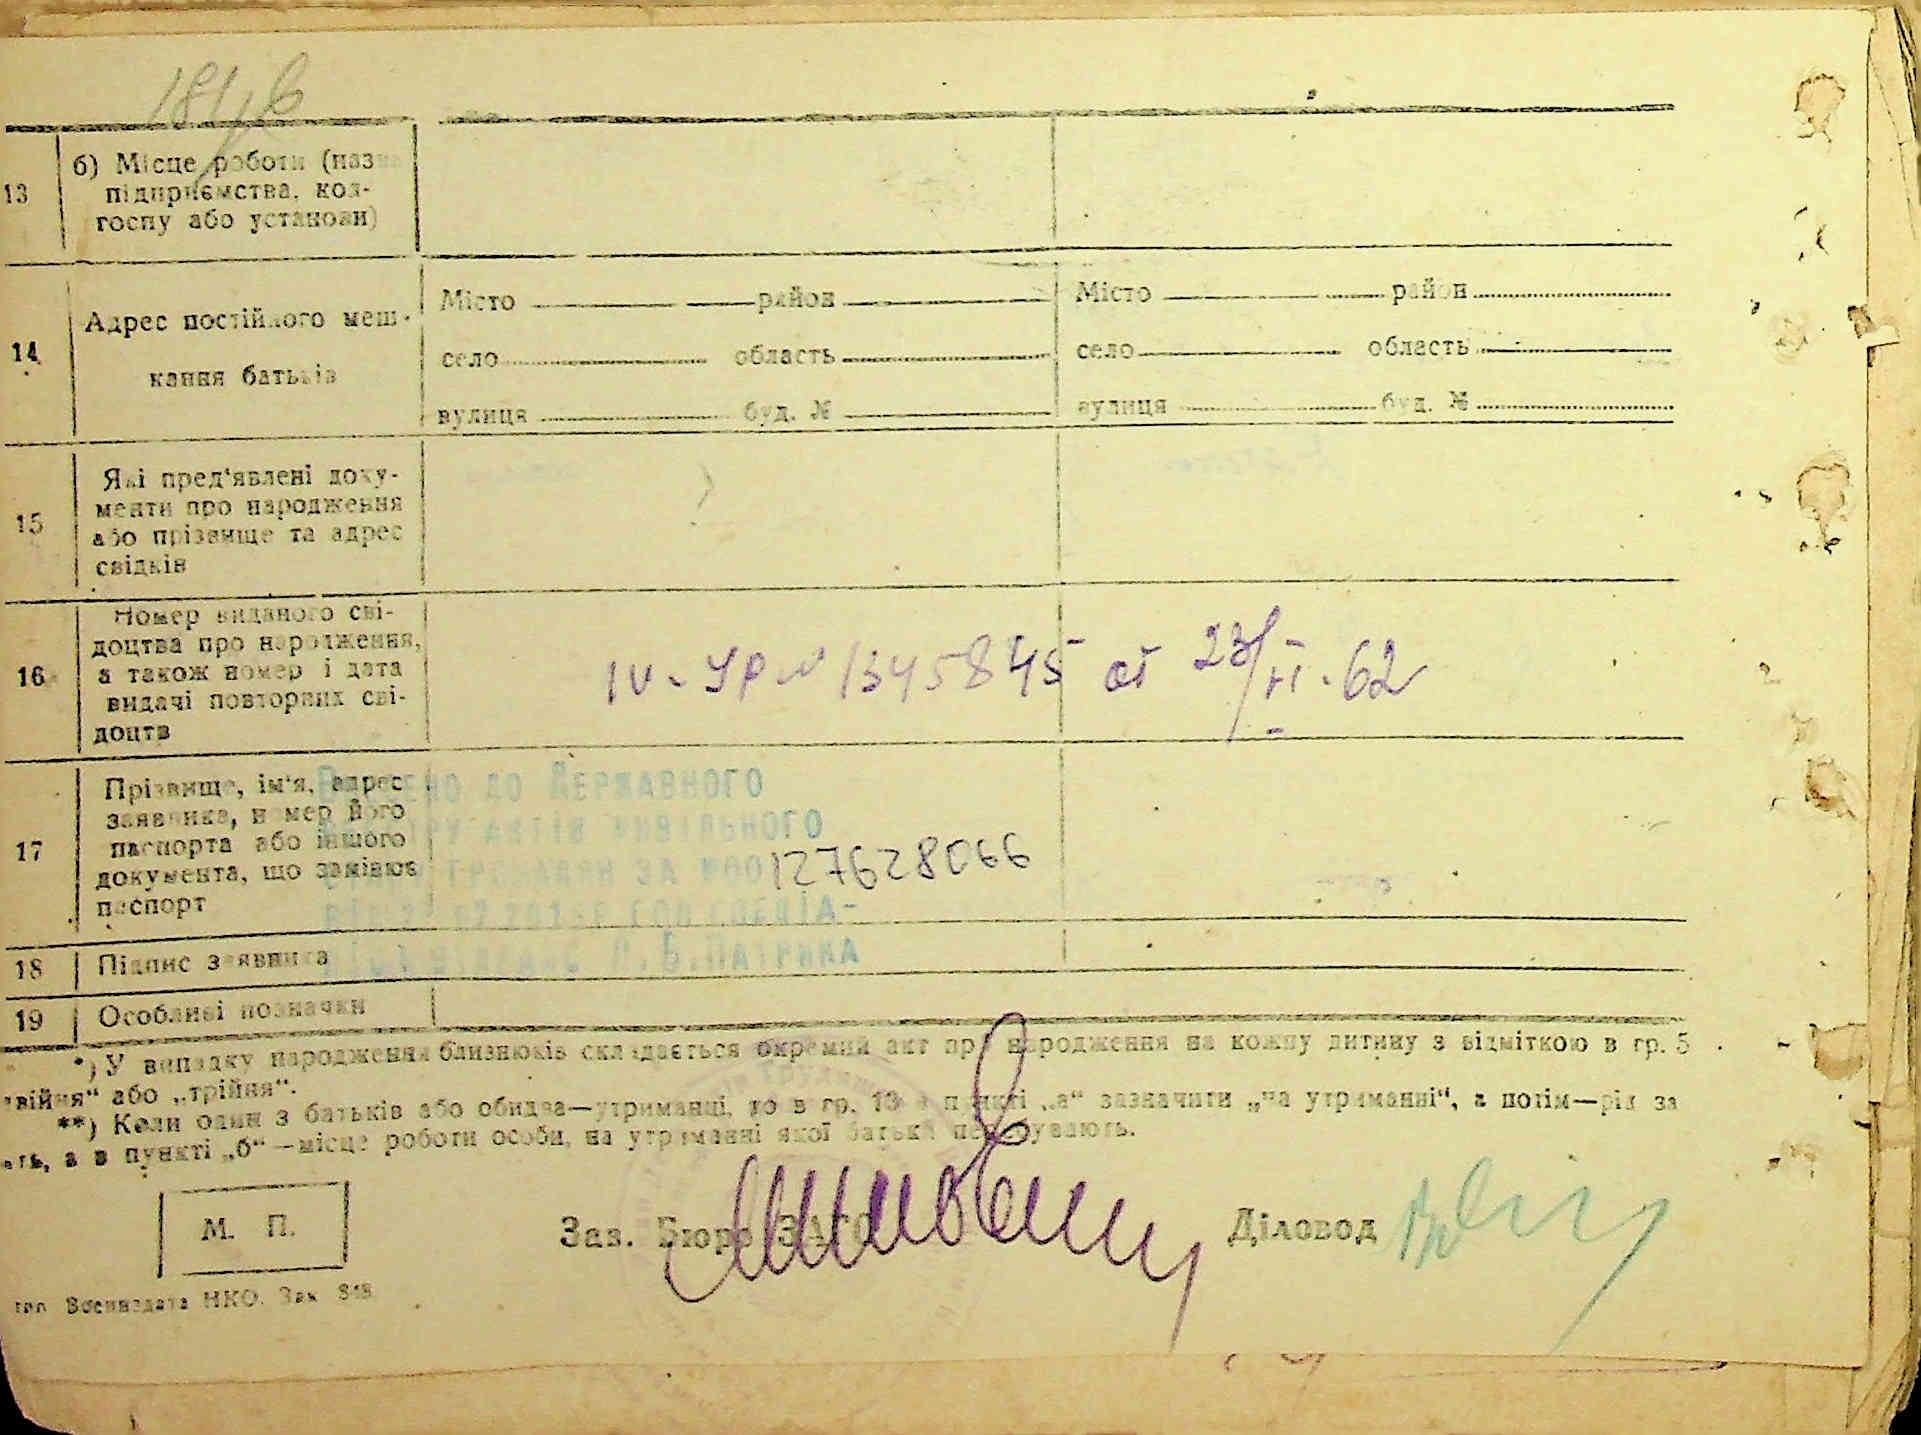 13
б) Місце роботи (назва
підприємства, кол-
госпу або установи)
14
Адрес постійного меш-
кання батьків
Місто район
село область
вулиця буд. №
Місто район
село область
вулиця буд. №
15
Які пред'явлені доку-
менти про народження
або прізвище та адрес
свідків
16
Номер виданого сві-
доцтва про народження,
а також номер і дата
видачі повторних сві-
доцтв
IV-УР № 1345845 от 23/II-62
17
Прізвище, ім'я, адрес
заявника, номер його
паспорта або іншого
документа, що замінює
паспорт
до Державного
актів цивільного
громадян за №00127628066
Патрика
18
Підпис заявника
19
Особливі позначки
*) У випадку народження близнюків складається окремий акт про народження на кожну дитину з відміткою в гр. 5
двійня" або „трійня".
**) Коли один з батьків або обидва—утриманці, то в гр. 13 в пункті „а" зазначити „на утриманні", а потім—рід за
ать, а в пункті „б"—місце роботи особи, на утриманні якої батьки перебувають.
М. П.
Зав. Бюро ЗАГС
Діловод
тип. Воениздата НКО. Зак.